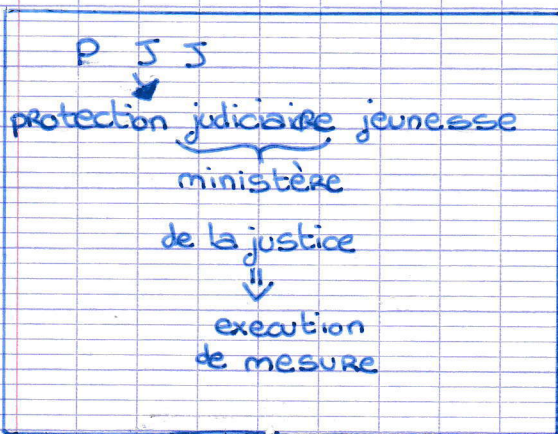 P J J
protection judiciaire jeunesse
ministère
de la justice
execution
de mesure